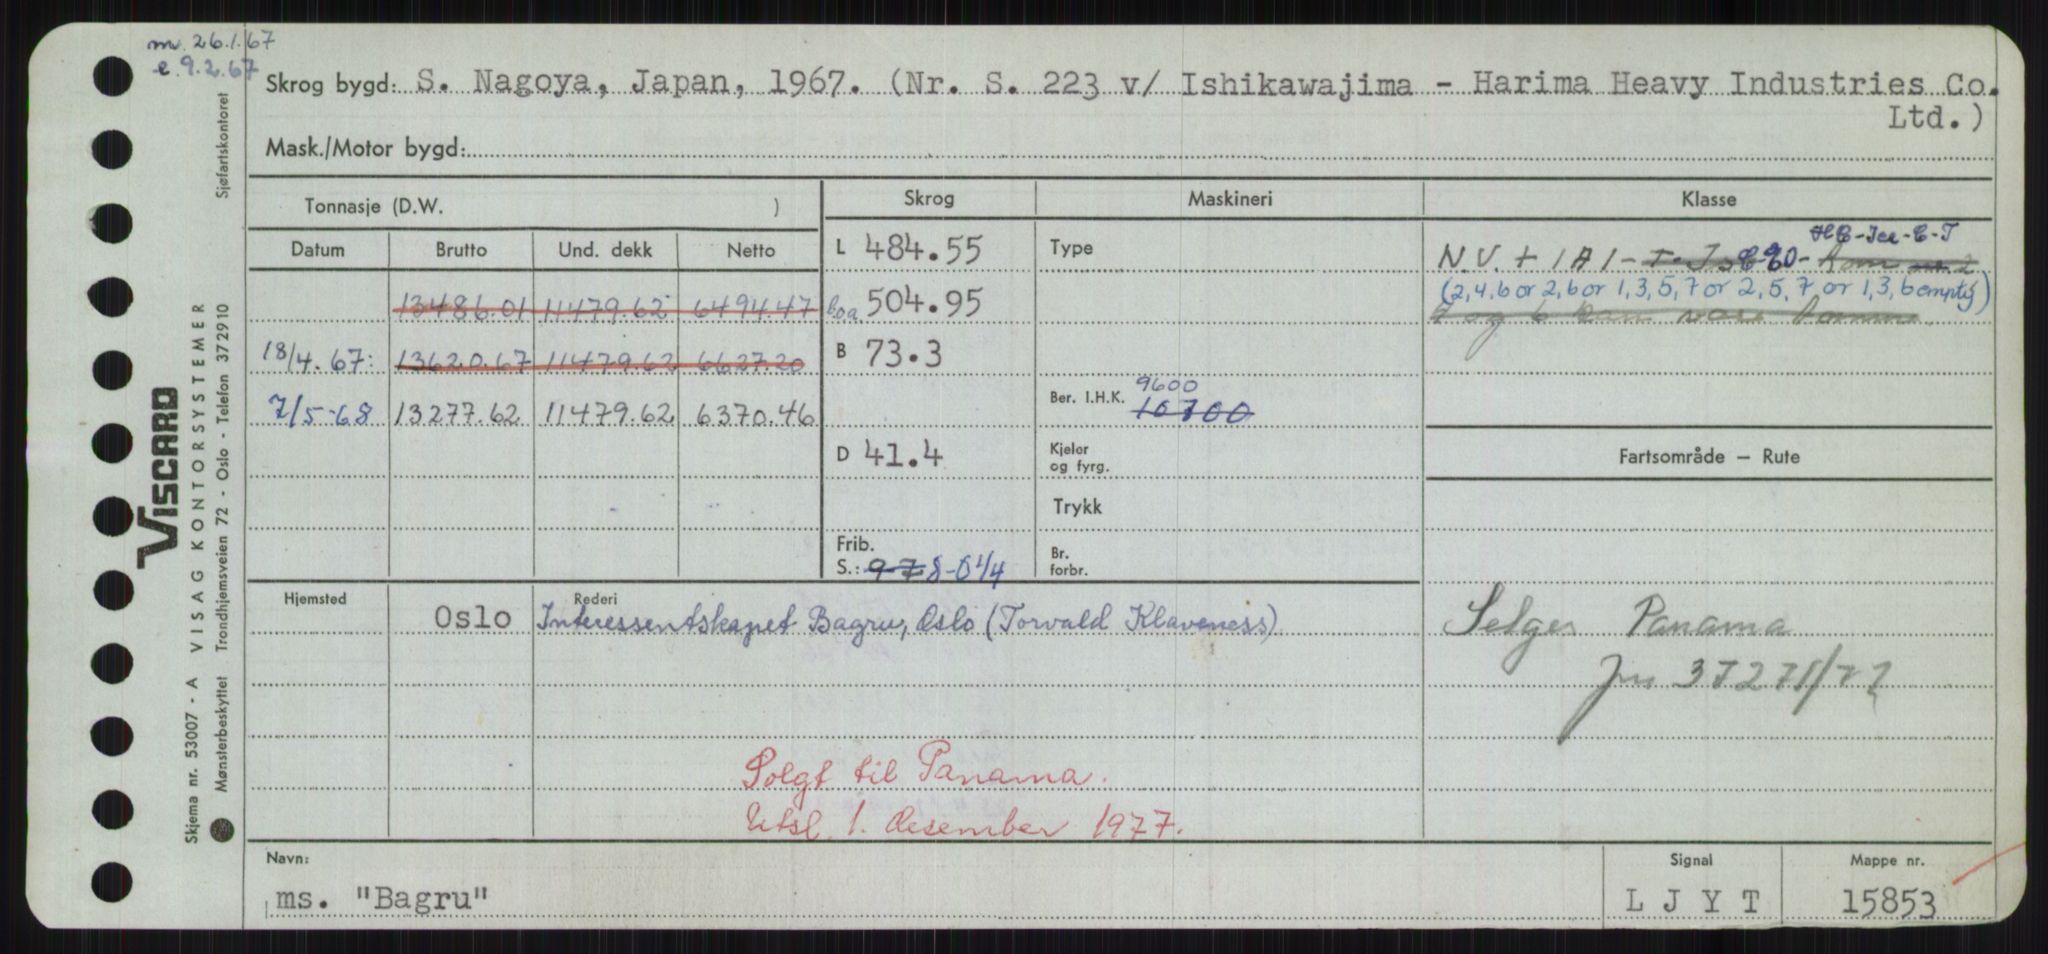 m. 26.1.67
e. 9.2.67
Skrog bygd: S. Nagoya, Japan, 1967. (Nr. S. 223 v/ Ishikawajima - Harima Heavy Industries Co.
Ltd.)
Mask./Motor bygd:
Tonnasje (D.W. )
Skrog
Maskineri
Klasse
Datum Brutto Und. dekk Netto
13486.01 11479.62 6494.47
18/4.67: 13620.67 11479.62 6627.20
7/5-68 13277.62 11479.62 6370.46
L 484.55
b.oa 504.95
B 73.3
D 41.4
Frib.
S.: 9-7 8-0 1/4
Type
9600
Ber. I.H.K. 10700
Kjeler
og fyrg.
Trykk
Br.
forbr.
HC-Ice-C-T
N.V. + 1A1 - Rom nr. 2
(2,4,6 or 2,6 or 1,3,5,7 or 2,5,7 or 1,3,6 empty)
og 6 kan være tomme
Fartsområde – Rute
Hjemsted
Rederi
Oslo Interessentskapet Bagru, Oslo (Torvald Klaveness)
Selges Panama
Solgt til Panama.
Utsl. 1. desember 1977.
Navn:
ms. "Bagru"
Signal
L J Y T
Mappe nr.
15853
VISCARD
Skjema nr. 53007 - A VISAG KONTORSYSTEMER
Mønsterbeskyttet Trondhjemsveien 72 - Oslo - Telefon 372910 Sjøfartskontoret